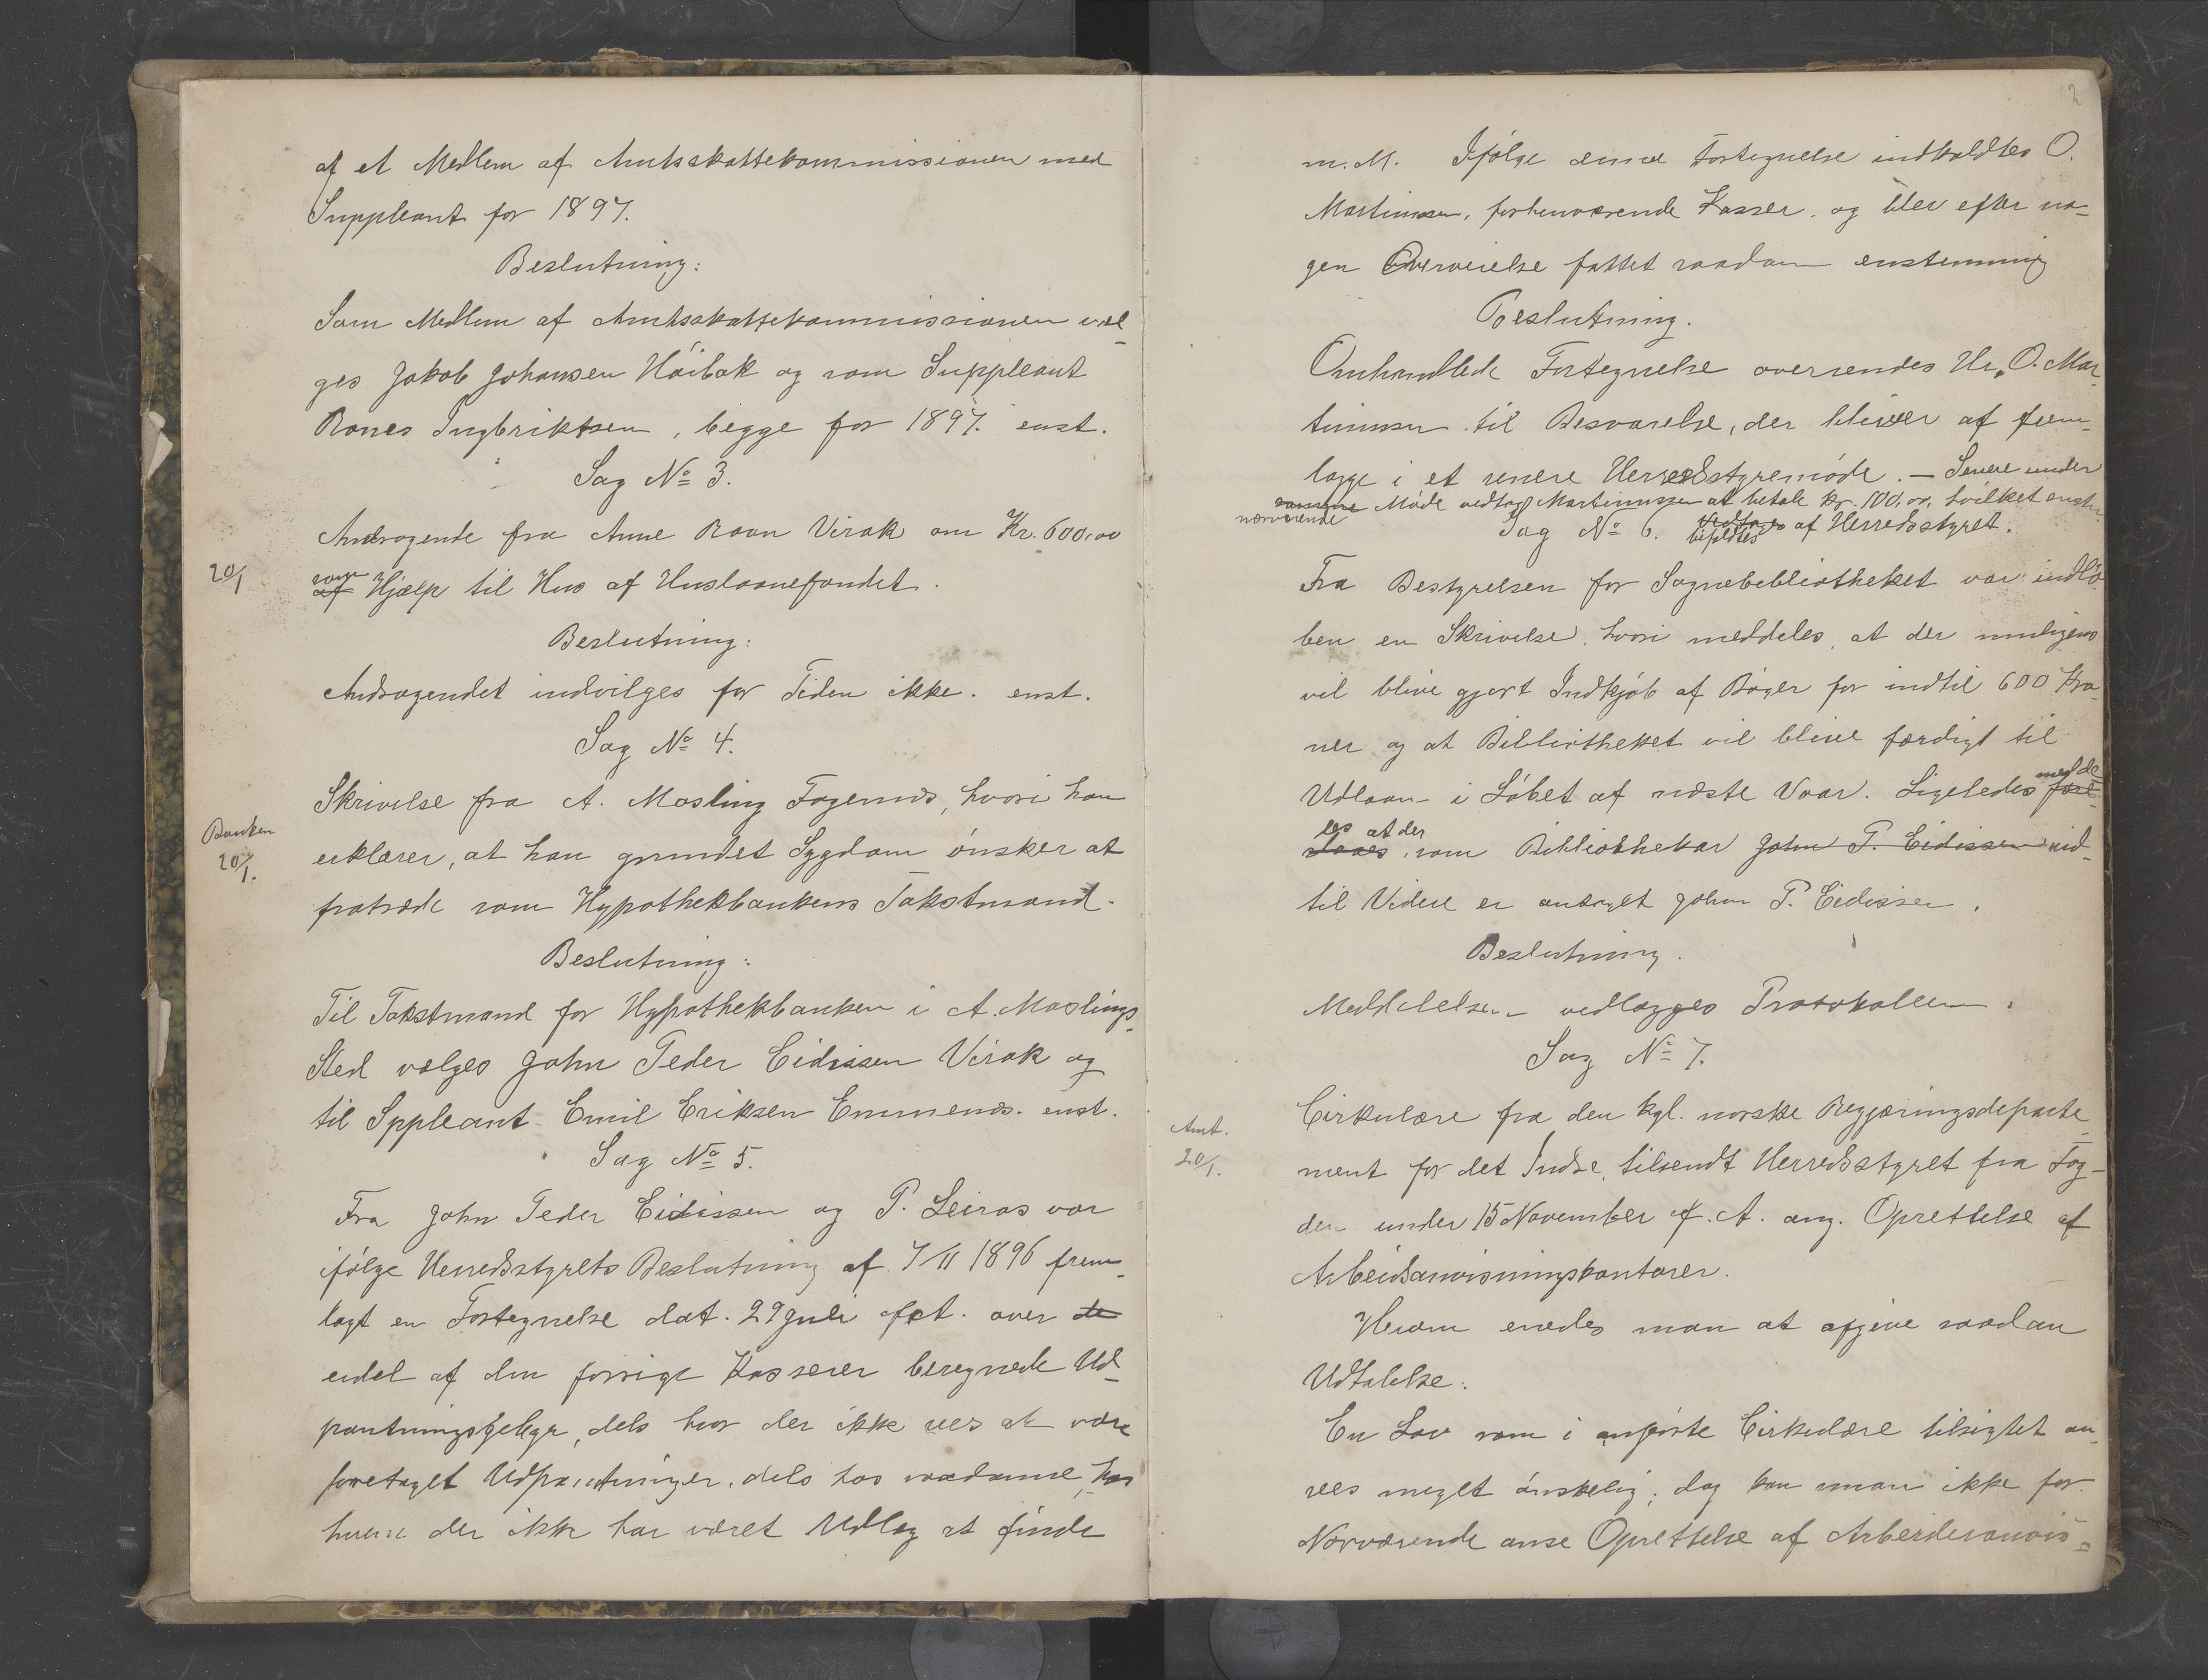 af et Medlem af Amtsskattekommissionen med
Suppleant for 1897.
Beslutning:
Som Medlem af Amtsskattekommissionen vel-
ges Jakob Johansen Höibak og som Suppleant
Rones Ingbriktsen, begge for 1897. enst.
Sag No 3.
Andragende fra Anne Roan Virak om Kr. 600,00
20/1
som
af Hjælp til Hus af Huslaanefondet.
Beslutning:
Andragendet indvilges for Tiden ikke. enst.
Sag No 4.
Skrivelse fra A. Mosling Fagernes, hvori han
Banken
20/1.
erklærer, at han grundet Sygdom ønsker at
fratræde som Hypothekbankens Takstmand.
Beslutning:
Til Takstmand for Hypothekbanken i A. Moslings
Sted vælges John Peder Eidissen Virak og
til Sppleant Emil Eriksen Emmenes. enst.
Sag No 5.
Fra John Peder Eidissen og P. Leiros var
ifölge Herredsstyrets Beslutning af 7/11 1896 frem-
lagt en Fortegnelse dat. 29 Juli over de
endel af den forrige Kasserer beregnede Ud-
pantningsgebyr, dels hvor der ikke sees at være
foretaget Udpantninger, dels hos saadanne, hos
hvem der ikke har været Udlæg at finde
2
m. M. Ifölge denne Fortegnelse indkaldtes O.
Martinussen, forhenværende Kasser. og blev efter no-
gen Overveielse fattet saadan enstemmig
Beslutning.
Omhandlede Fortegnelse oversendes Hr. O. Mar-
tinussen til Besvarelse, der bliver at frem-
lægge i et senere Herredsstyremöde. - Senere under
samme Möde vedtog Martinussen at betale kr. 100,00, hvilket enst.
nærværende
Sag No 6. Vedtages af Herredsstyret.
bifaldtes
Fra Bestyrelsen for Sognebibliotheket var indlö-
ben en Skrivelse, hvori meddeles, at der muligens
vil blive gjort Indkjöb af Böger for indtil 600 Kro-
ner og at Bibliotheket vil blive færdigt til
medde-
Udlaan i Löbet af næste Vaar. Ligeledes fore-
les at der
slaaes som Bibliothekar John P. Eidissen ind-
til Videre er antaget John P. Eidissen.
Beslutning.
Meddelelsen vedlægges Protokollen.
Sag No 7.
Amt.
20/1.
Cirkulære fra den kgl. norske Regjeringsdeparte-
ment for det Indre, tilsendt Herredsstyret fra Fog-
den under 15 November f. A. ang. Oprettelse af
Arbeidsanvisningskontorer.
Herom enedes man at afgive saadan
Udtalelse:
En Lov som i anförte Cirkulære tilsigtet an-
sees meget önskelig; dog kan man ikke for
Nærværende anse Oprettelse af Arbeidsanvis-